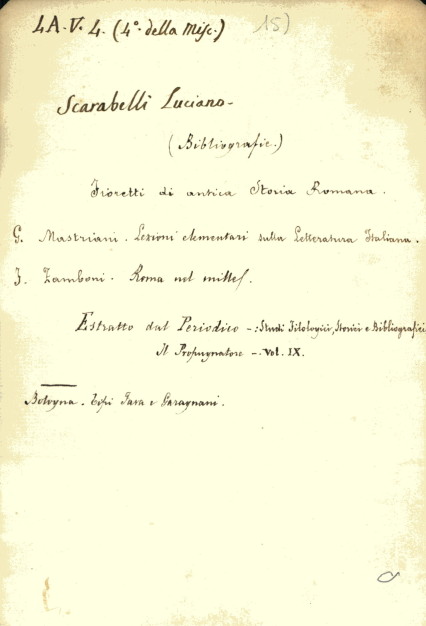 4A.V.4. (4° della Misc.) 15)
Scarabelli Luciano-
(Bibliografie.)
Fioretti di antica Storia Romana.
G. Mastriani. Lezioni elementari sulla Letteratura Italiana.
F. Zamboni. Roma nel mille.
Estratto dal Periodico -: Studi Filologici, Storici e Bibliografici
Il Propugnatore -. Vol. IX.
Bologna. Tipi Fava e Garagnani.